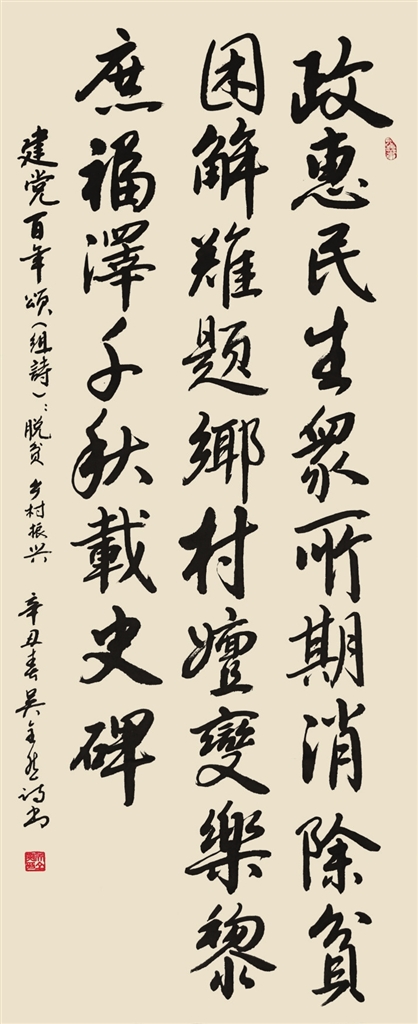 政惠民生眾所期消除貧
困解難題鄉村嬗變樂黎
庶福澤千秋載史碑
建党百年颂（组詩）：脱贫 乡村振兴 辛丑春吴全然诗书